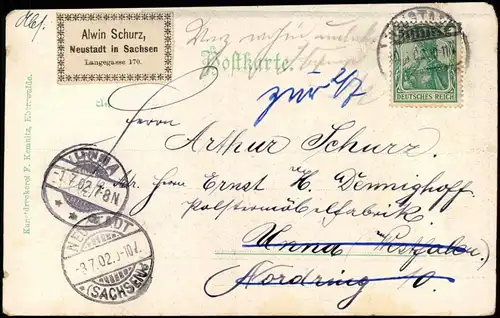 Abs.
Alwin Schurz,
Neustadt in Sachsen
Langegasse 170.
Postkarte.
zur 2/7
DEUTSCHES REICH
Herrn
Arthur Schurz.
Adr. Herrn Ernst H. Dennighoff
Polstermöbelfabrik
Unna Westfalen
Nordring 10.
UNNA
1.7.02. 7-8N
NEUSTADT
3.7.02. 9-10V.
(SACHSEN)
Kunstdruckerei F. Eberswalde.